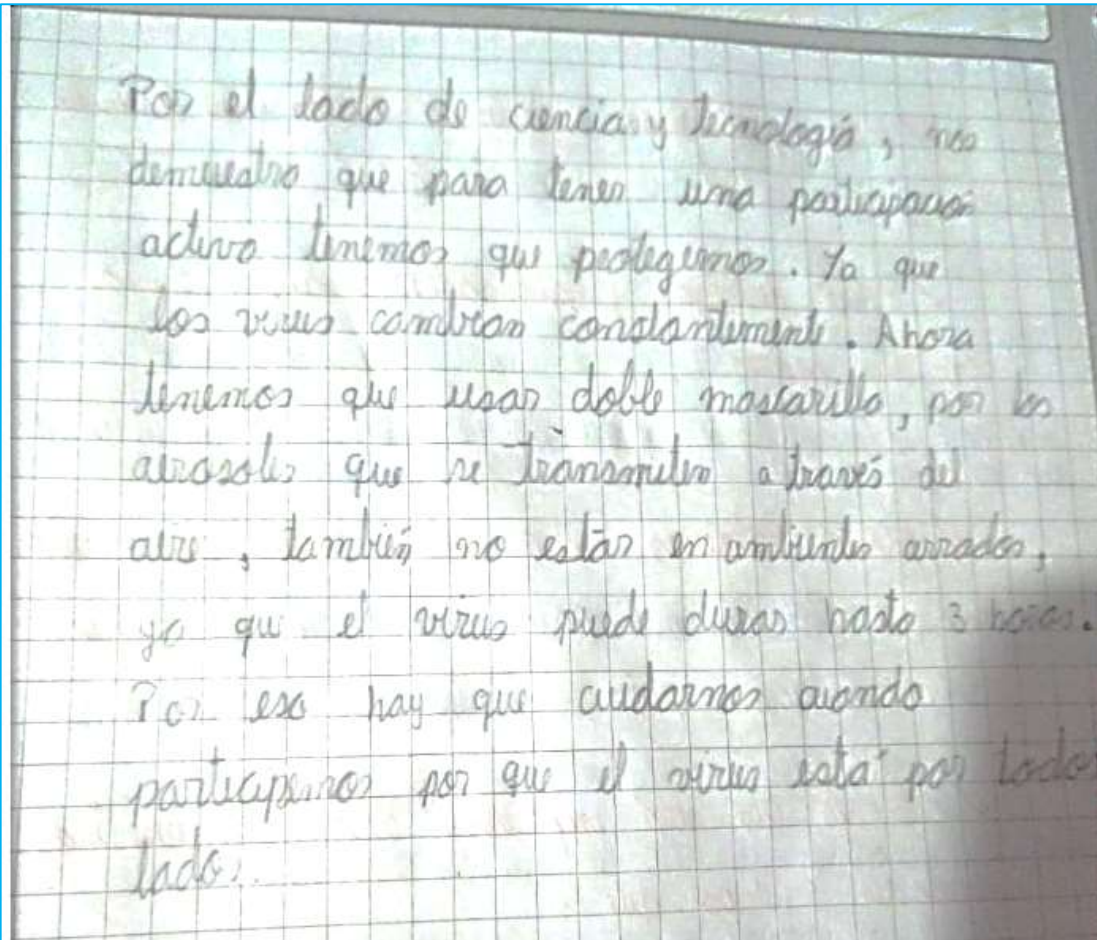 Por el lado de ciencia y tecnología, nos
demuestra que para tener una participación
activa tenemos que protegernos. Ya que
los virus cambian constantemente. Ahora
tenemos que usar doble mascarilla, por los
airosoles que se transmiten a través del
aire, también no estar en ambientes cerrados,
ya que el virus puede durar hasta 3 horas.
Por eso hay que cuidarnos cuando
participemos por que el virus está por todos
lados.